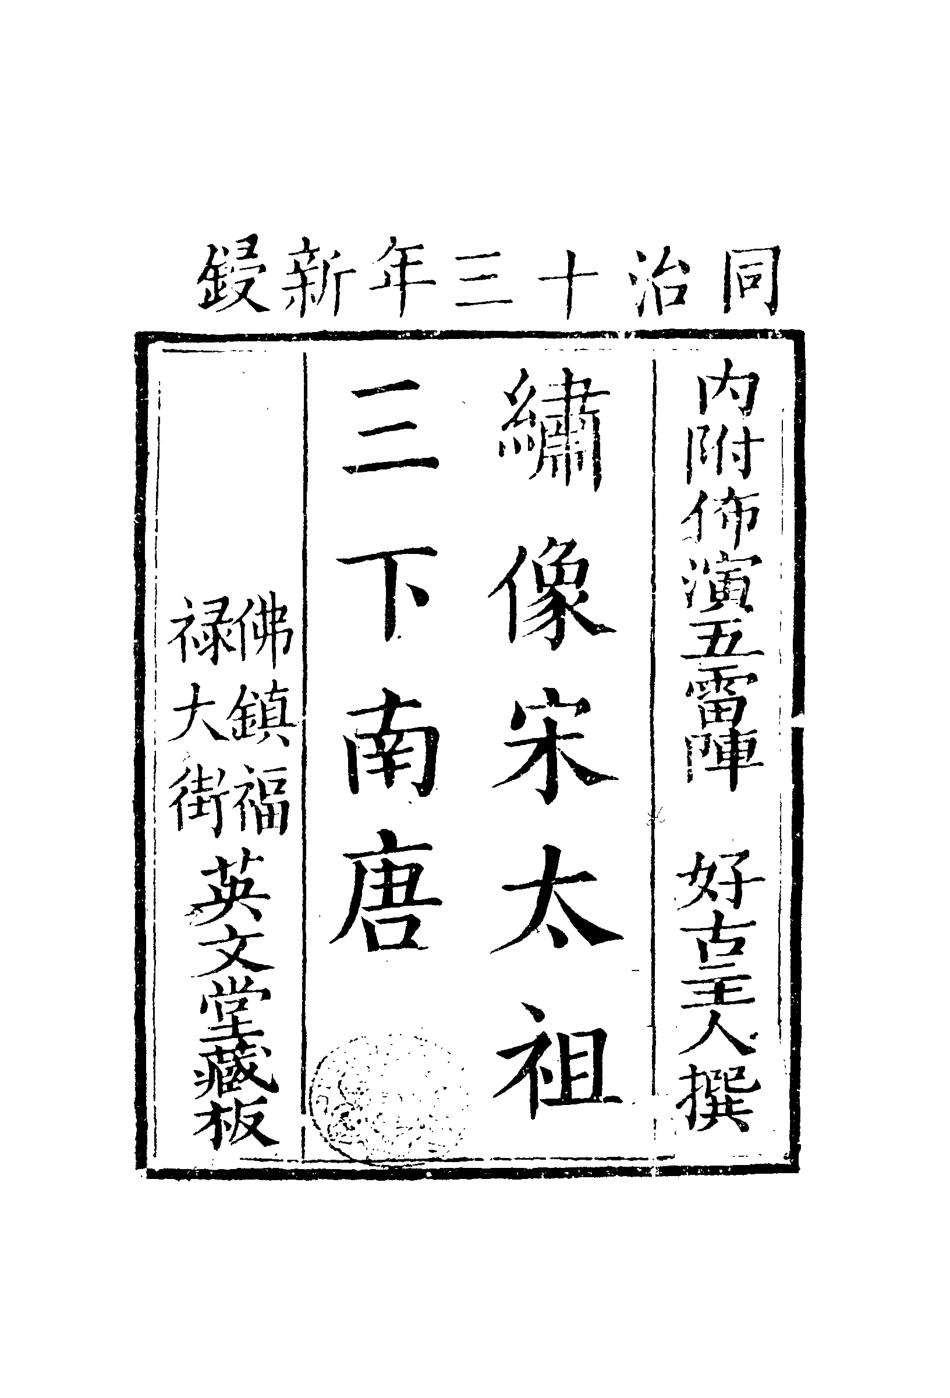 同治十三年新鋟
内附佈演五雷陣　好古主人撰
繡像宋太祖
三下南唐
佛鎮福
禄大街
英文堂藏板